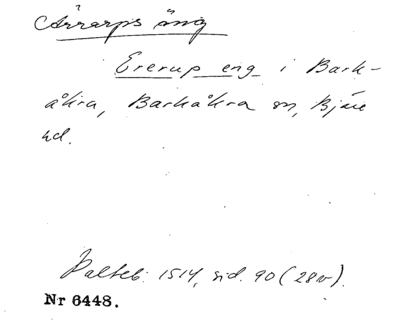 Ärrarps äng
Ererup eng i Bark-
åkra, Barkåkra sn, Bjäre
hd.
Palteb. 1514, sid. 90 (28v).
Nr 6448.